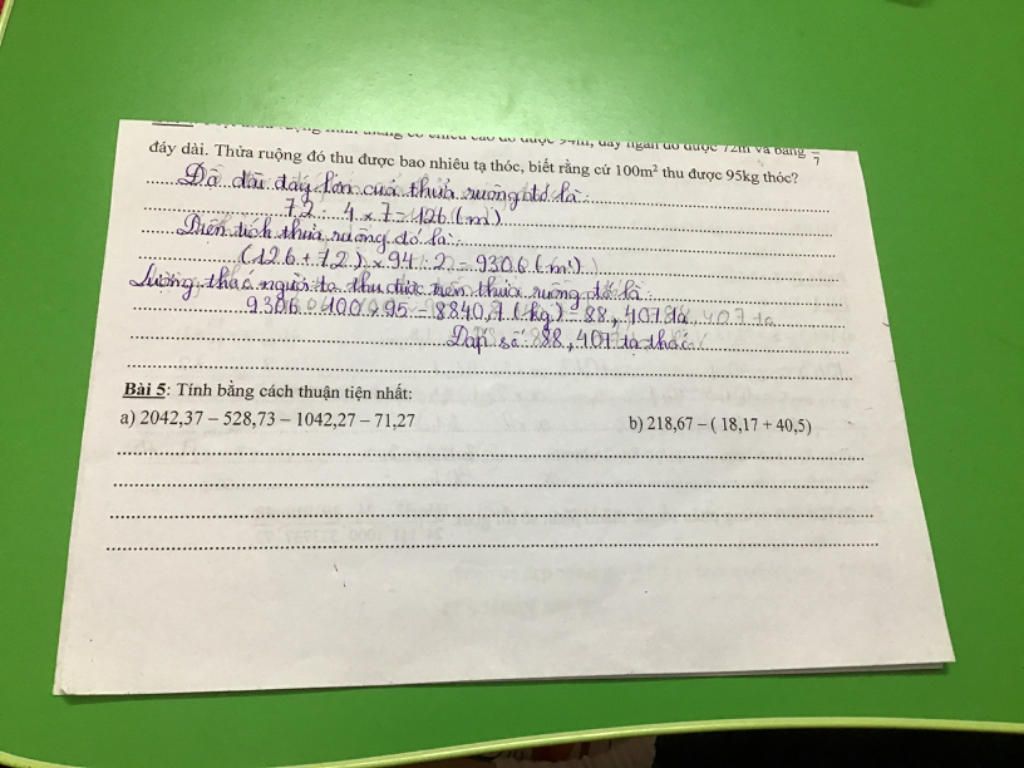 chiều cao đo được 94m, đáy ngắn đo được 72m và bằng /7
đáy dài. Thửa ruộng đó thu được bao nhiêu tạ thóc, biết rằng cứ 100m² thu được 95kg thóc?
Độ dài đáy lớn của thửa ruộng đó là:
72 : 4 x 7 = 126 (m)
Diện tích thửa ruộng đó là:
(126 + 72) x 94 : 2 = 9306 (m²)
Lượng thóc người ta thu được trên thửa ruộng đó là:
9306 : 100 x 95 = 8840,7 (kg) = 88,407 tạ
Đáp số: 88,407 tạ thóc
Bài 5: Tính bằng cách thuận tiện nhất:
a) 2042,37 – 528,73 – 1042,27 – 71,27 b) 218,67 – ( 18,17 + 40,5)